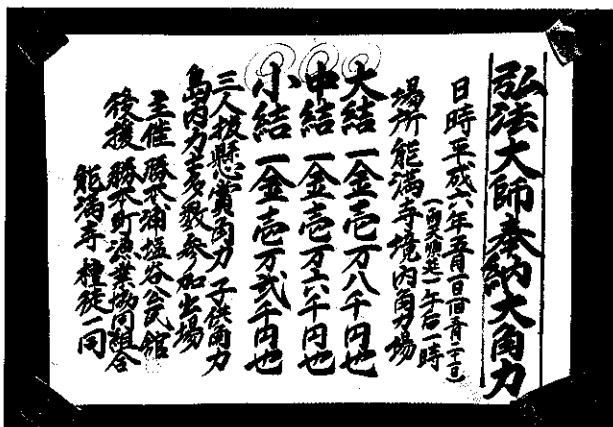 弘法大師奉納大角力
日時平成六年五月一日(旧三月二十一日)
(雨天順延)午后一時
場所能満寺境内角力場
大結 一金壱万八千円也
中結 一金壱万六千円也
小結 一金壱万弐千円也
三人抜懸賞角力 子供角力
島内力士多数参加出場
主催 勝本浦塩谷公民館
後援 勝本町漁業協同組合
能満寺 檀徒一同